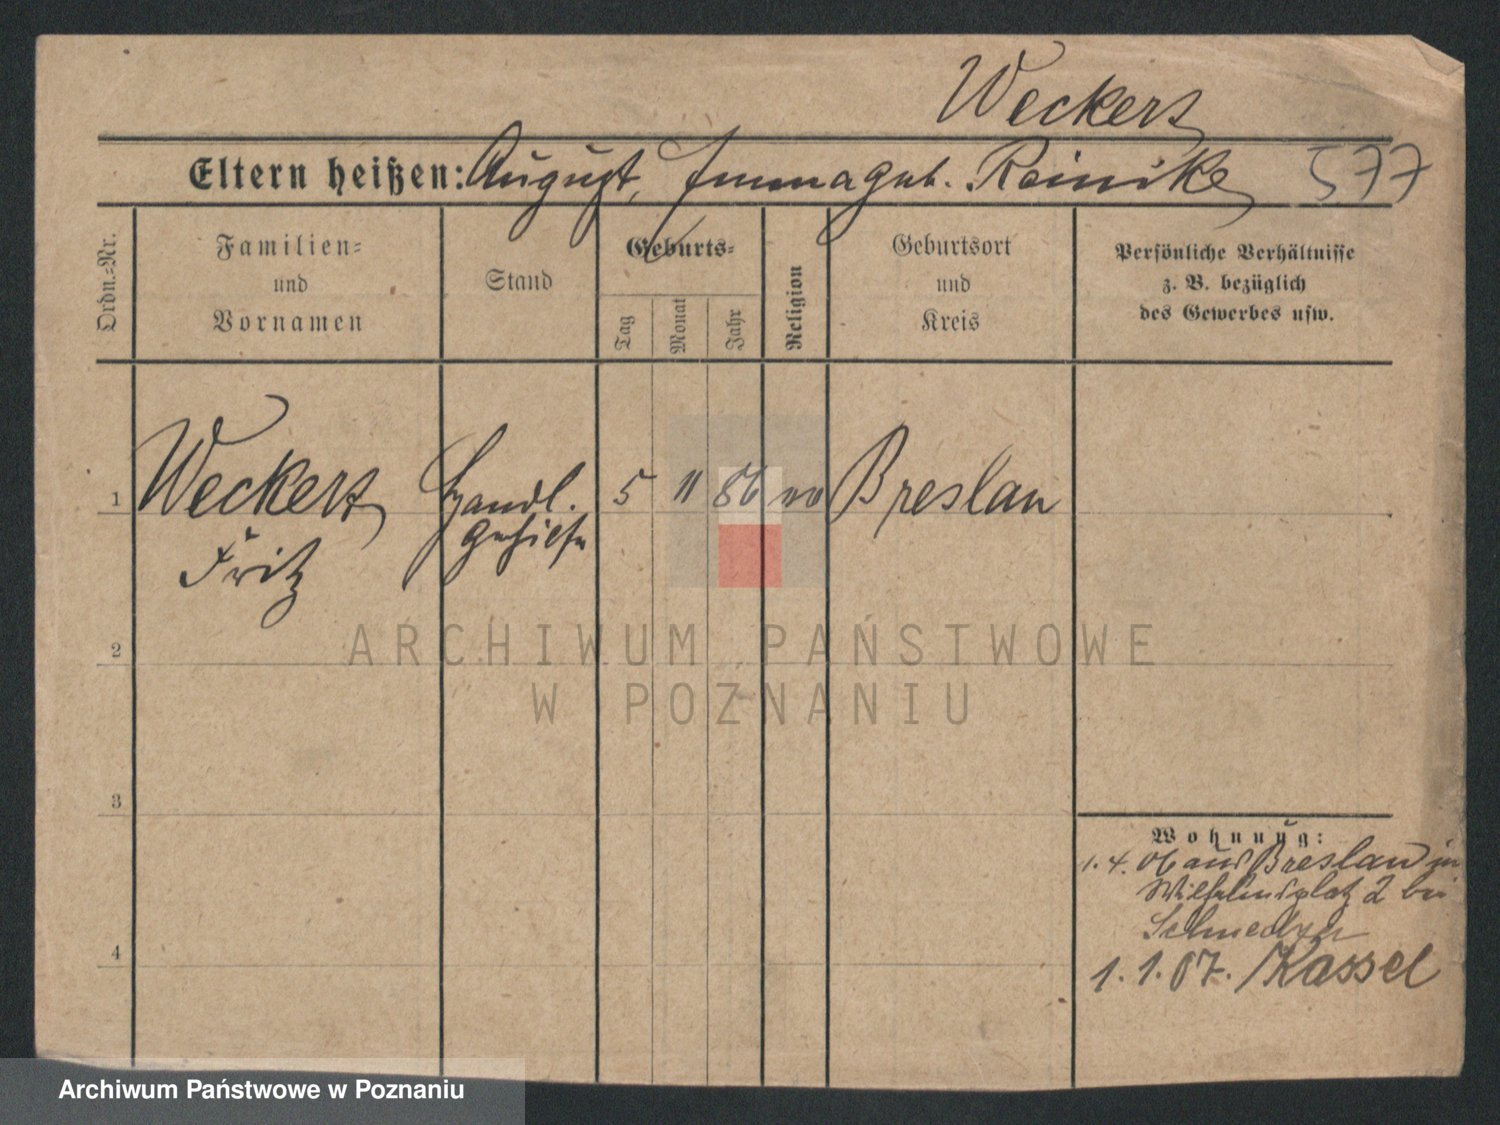 Weckert
Eltern heißen: August, Emma geb. Reinike 577
Ordn.-Nr.
Familien-
und
Vornamen
Stand
Geburts-
Tag
Monat
Jahr
Religion
Geburtsort
und
Kreis
Persönliche Verhältnisse
z. B. bezüglich
des Gewerbes usw.
1 Weckert Handl. 5 11 86 Breslau
Fritz gehilfe
2
3
4
Wohnung:
1. 4. 06 aus Breslau in
Wilhelmsplatz 2 bei
1. 1. 07. Kassel
ARCHIWUM PAŃSTWOWE
W POZNANIU
Archiwum Państwowe w Poznaniu